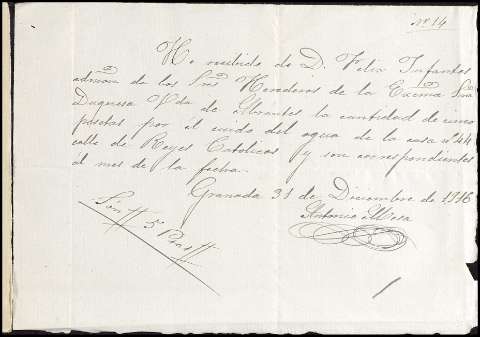 Nº 14
He recibido de D. Felix Infantes
admor. de los Sres Herederos de la Excma Sra
Duquesa Vda de Abrantes la cantidad de cinco
pesetas por el cuido del agua de la casa nº 44
calle de Reyes Catolicos y son correspondientes
al mes de la fecha.
Granada 31 de Diciembre de
Antonio Mesa
Son 5 Ptas